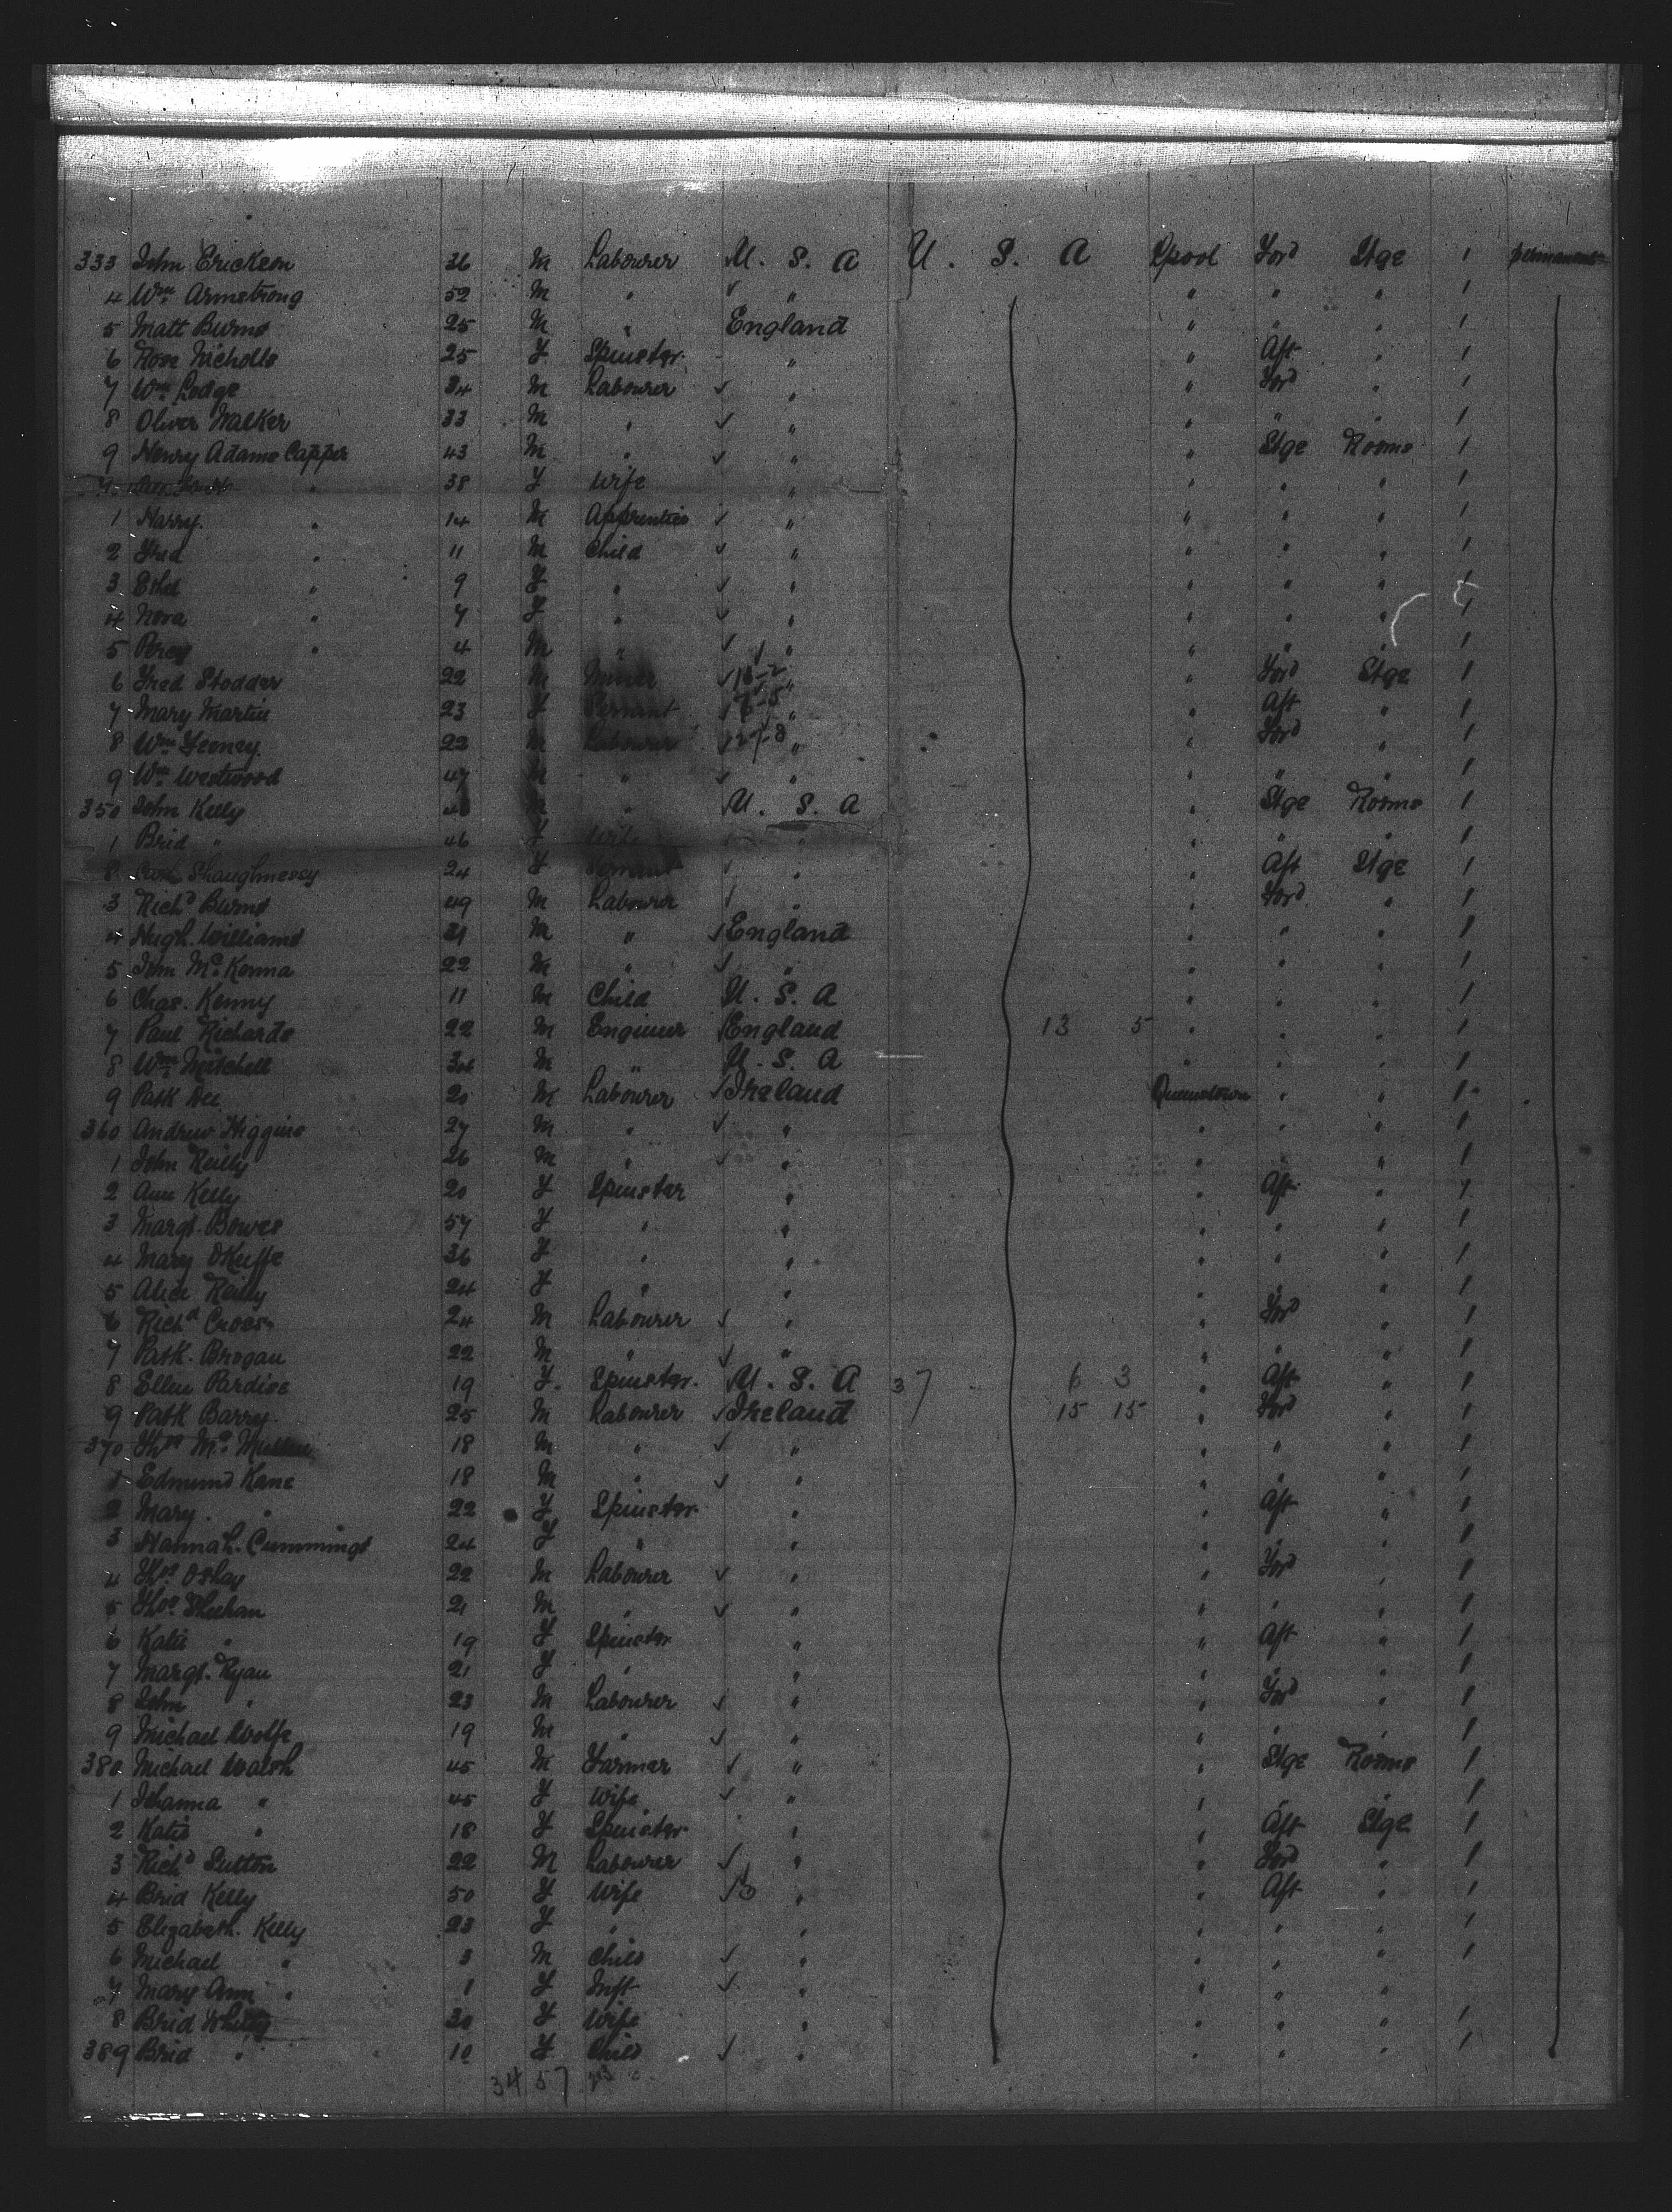 333 John Erickson 36 M Labourer U. S. A U. S. A Lpool Ford Stge 1 permanent
4 Wm Armstrong 52 M " " " " " 1
5 Matt Burns 25 M " England " " " 1
6 Rose Nicholls 25 F Spinster " " Aft " 1
7 Wm Lodge 34 M Labourer " " Ford " 1
8 Oliver Walker 33 M " " " " " 1
9 Henry Adams Capper 43 M " " " Stge Rooms 1
38 F Wife " " " " 1
1 Harry " 14 M Apprentice " " " " 1
2 Fred " 11 M Child " " " " 1
3 Ethel " 9 F " " " " " 1
4 Nora " 7 F " " " " " 1
5 Percy " 4 M " " " " " 1
6 Fred Stodder 22 M Miner " " Ford Stge 1
7 Mary Martin 23 F Servant " " Aft " 1
8 Wm Feeney 22 M Labourer " " Ford " 1
9 Wm Westwood 47 M " " " " " 1
350 John Kelly M " U. S. A " Stge Rooms 1
1 Brid " 46 F Wife " " " " 1
Shaughnessy 24 F Servant " " Aft Stge 1
3 Richd Burns 49 M Labourer " " Ford " 1
4 Hugh Williams 21 M " England " " " 1
5 John McKenna 22 M " " " " " 1
6 Chas. Kenny 11 M Child U. S. A " " " 1
7 Paul Richards 22 M Engineer England 13 5 " " " 1
8 Wm Mitchell M " U. S. A " " " 1
9 Patk Dee 20 M Labourer Ireland Queenstown " " 1
360 Andrew Higgins 27 M " " " " " 1
1 John Reilly 26 M " " " " " 1
2 Ann Kelly 20 F Spinster " " Aft " 1
3 Margt. Bowes 57 F " " " " " 1
4 Mary OKeeffe 36 F " " " " " 1
5 Alice Reilly 24 F " " " " " 1
6 Richd Cross 24 M Labourer " " Ford " 1
7 Patk. Brogan 22 M " " " " " 1
8 Ellen Pardise 19 F. Spinster. U. S. A 37 6 3 " Aft " 1
9 Patk Barry 25 M Labourer Ireland 15 15 " Ford " 1
370 18 M " " " " " 1
1 Edmund Kane 18 M " " " " " 1
2 Mary. " 22 F Spinster " " Aft " 1
3 Hannah. Cummings 24 F " " " " " 1
4 Thos 22 M Labourer " " Ford " 1
5 Thos Sheehan 21 M " " " " " 1
6 Katie " 19 F Spinster " " Aft " 1
7 Margt. Ryan 21 F " " " " " 1
8 John " 23 M Labourer " " Ford " 1
9 Michael Wolfe 19 M " " " " " 1
380 Michael Walsh 45 M Farmer " " Stge Rooms 1
1 Johanna " 45 F Wife " " " " 1
2 Katie " 18 F Spinster " " Aft Stge 1
3 Richd Sutton 22 M Labourer " " Ford " 1
4 Brid Kelly 50 F Wife " " Aft " 1
5 Elizabeth. Kelly 23 F " " " " " 1
6 Michael " 3 M Child " " " " 1
7 Mary Ann " 1 F Inft " " " "
8 Brid 30 F Wife " " " " 1
389 Brid " 10 F Child " " " " 1
34 57